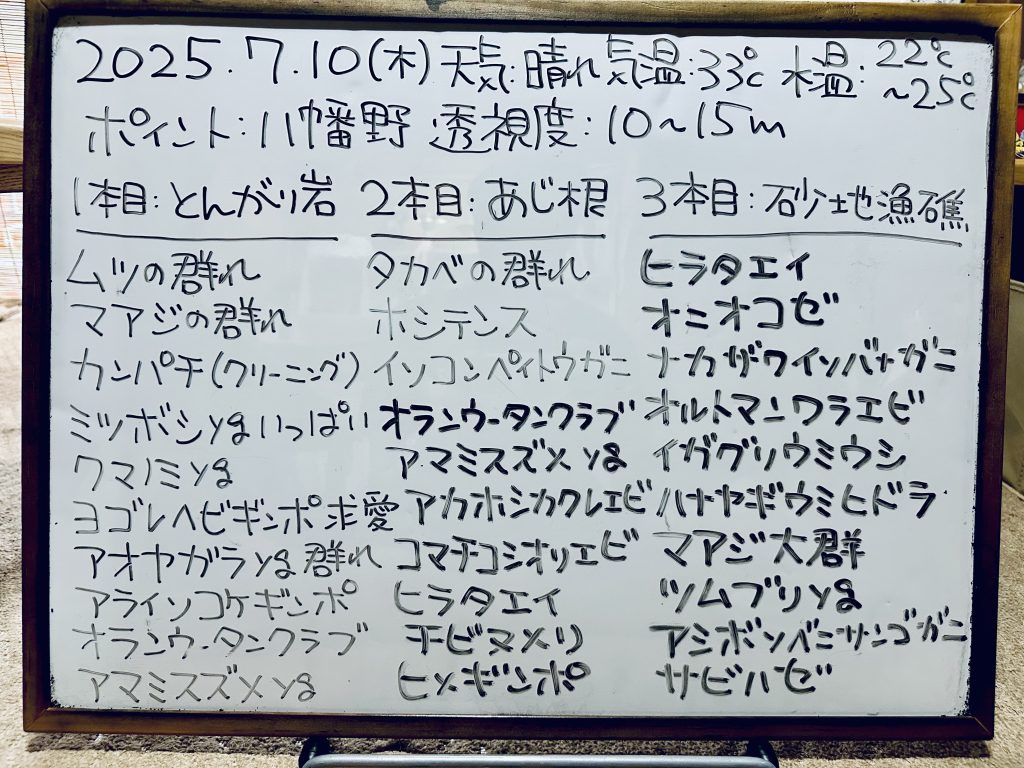 2025.7.10(木) 天気:晴れ 気温:33℃ 水温:22℃~25℃
ポイント:八幡野 透視度:10~15m
1本目:とんがり岩
ムツの群れ
マアジの群れ
カンパチ(クリーニング)
ミツボシygいっぱい
クマノミyg
ヨゴレヘビギンポ求愛
アオヤガラyg群れ
アライソコケギンポ
オランウータンクラブ
アマミスズメyg
2本目:あじ根
タカベの群れ
ホシテンス
イソコンペイトウガニ
オランウータンクラブ
アマミスズメyg
アカホシカクレエビ
コマチコシオリエビ
ヒラタエイ
チビヌメリ
ヒメギンポ
3本目:砂地漁礁
ヒラタエイ
オニオコゼ
ナカザワイソバナガニ
オルトマンワラエビ
イガグリウミウシ
ハナヤギウミヒドラ
マアジ大群
ツムブリyg
アシボソベニサンゴガニ
サビハゼ